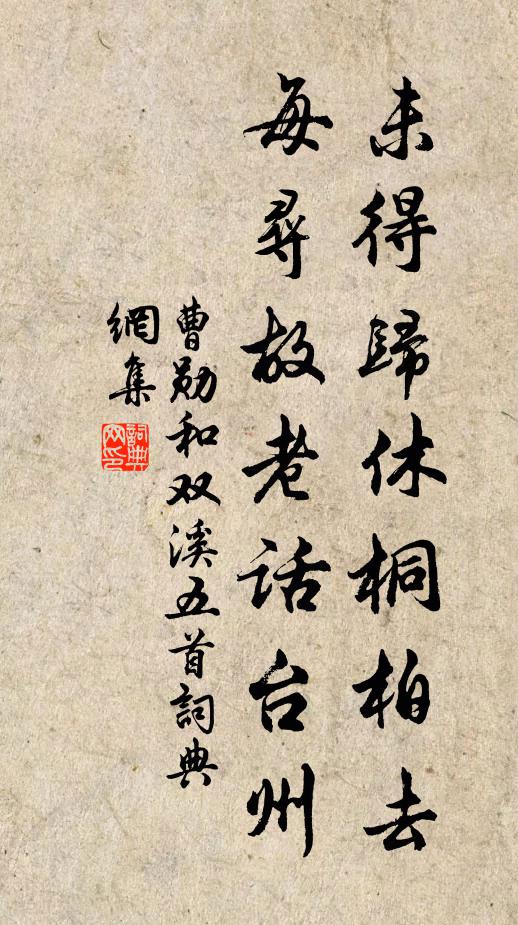 未得歸休桐柏去
每尋故老話台州
曹勛和双溪五首詞典
網集
詞典
网印